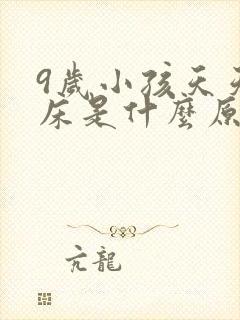 9歲小孩天天
床是什麼原
亢龍